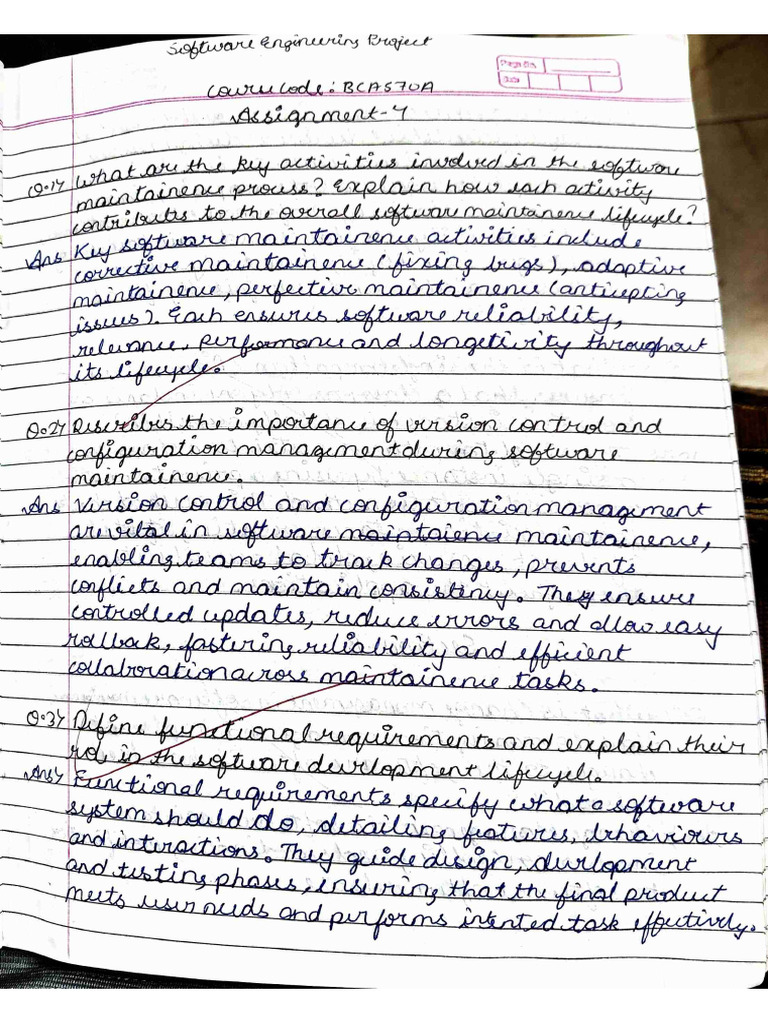 Software Engineering Project
Page No.
Date
Course code: BCA570A
Assignment-4
Q.1↵ What are the key activities involved in the software
maintainence process? Explain how each activity
contributes to the overall software maintainence lifecycle?
Ans Key software maintainence activities include
corrective maintainence (fixing bugs), adaptive
maintainence, perfective maintainence (anticipting
issues). Each ensures software reliability,
relevance, performance and longetivity throughout
its lifecycle.
Q.2↵ Describes the importance of version control and
configuration management during software
maintainence.
Ans Version control and configuration management
are vital in software maintaience maintainence,
enabling teams to track changes, prevents
conflicts and maintain consistency. They ensure
controlled updates, reduce errors and allow easy
rollback, fastering reliability and efficient
collaboration across maintainence tasks.
Q.3↵ Define functional requirements and explain their
role in the software development lifecycle.
Ans↵ Functional requirements specify what a software
system should do, detailing features, behaviours
and interactions. They guide design, development
and testing phases, ensuring that the final product
meets user needs and performs intented task effectively.